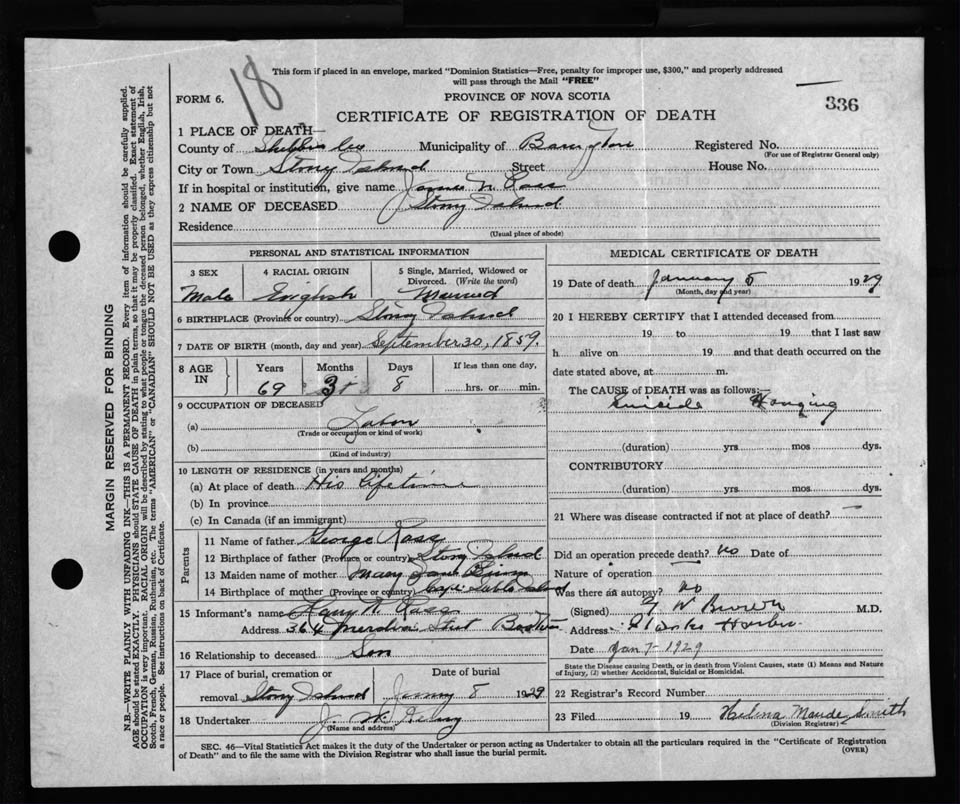 18
This form if placed in an envelope, marked "Dominion Statistics—Free, penalty for improper use, $300," and properly addressed
will pass through the Mail "FREE"
FORM 6.
PROVINCE OF NOVA SCOTIA
336
CERTIFICATE OF REGISTRATION OF DEATH
1 PLACE OF DEATH—
County of Municipality of Registered No.
(For use of Registrar General only)
City or Town Stony Island Street House No.
If in hospital or institution, give name James N. Ross
2 NAME OF DECEASED Stony Island
Residence
(Usual place of abode)
PERSONAL AND STATISTICAL INFORMATION
3 SEX 4 RACIAL ORIGIN 5 Single, Married, Widowed or
Divorced. (Write the word)
Male English Married
6 BIRTHPLACE (Province or country) Stony Island
7 DATE OF BIRTH (month, day and year) September 30, 1859.
8 AGE IN Years Months Days If less than one day,
69 3 8 hrs. or min.
9 OCCUPATION OF DECEASED
(a) Labor
(Trade or occupation or kind of work)
(b)
(Kind of industry)
10 LENGTH OF RESIDENCE (in years and months)
(a) At place of death His Lifetime
(b) In province
(c) In Canada (if an immigrant)
Parents
11 Name of father George Ross
12 Birthplace of father (Province or country) Stony Island
13 Maiden name of mother Mary Jane
14 Birthplace of mother (Province or country) Cape Sable Island
15 Informant's name Harry W. Ross
Address 364 Street Boston
16 Relationship to deceased Son
17 Place of burial, cremation or Date of burial
removal Stony Island 8 1929
18 Undertaker J.
(Name and address)
MEDICAL CERTIFICATE OF DEATH
19 Date of death January 5 1929
(Month, day and year)
20 I HEREBY CERTIFY that I attended deceased from
19 to 19 that I last saw
h alive on 19 and that death occurred on the
date stated above, at m.
The CAUSE of DEATH was as follows:—
Suicide Hanging
(duration) yrs. mos dys.
CONTRIBUTORY
(duration) yrs. mos. dys.
21 Where was disease contracted if not at place of death? —
Did an operation precede death? no Date of
Nature of operation
Was there an autopsy? no
(Signed) M.D.
Address Harbor
Date Jan 7 - 1929
State the Disease causing Death, or in death from Violent Causes, state (1) Means and Nature
of Injury, (2) whether Accidental, Suicidal or Homicidal.
22 Registrar's Record Number
23 Filed 19 Helena Maude Smith
(Division Registrar)
SEC. 46—Vital Statistics Act makes it the duty of the Undertaker or person acting as Undertaker to obtain all the particulars required in the "Certificate of Registration
of Death" and to file the same with the Division Registrar who shall issue the burial permit.
(OVER)
MARGIN RESERVED FOR BINDING
N.B.—WRITE PLAINLY WITH UNFADING INK—THIS IS A PERMANENT RECORD. Every item of information should be carefully supplied.
AGE should be stated EXACTLY. PHYSICIANS should STATE CAUSE OF DEATH in plain terms, so that it may be properly classified. Exact statement of
OCCUPATION is very important. RACIAL ORIGIN will be described by stating to what people or tongue the deceased person belonged, whether English, Irish,
Scotch, French, German, Russian, Ruthenian, etc. The terms "AMERICAN" or "CANADIAN" SHOULD NOT BE USED as they express citizenship but not
a race or people. See instructions on back of Certificate.